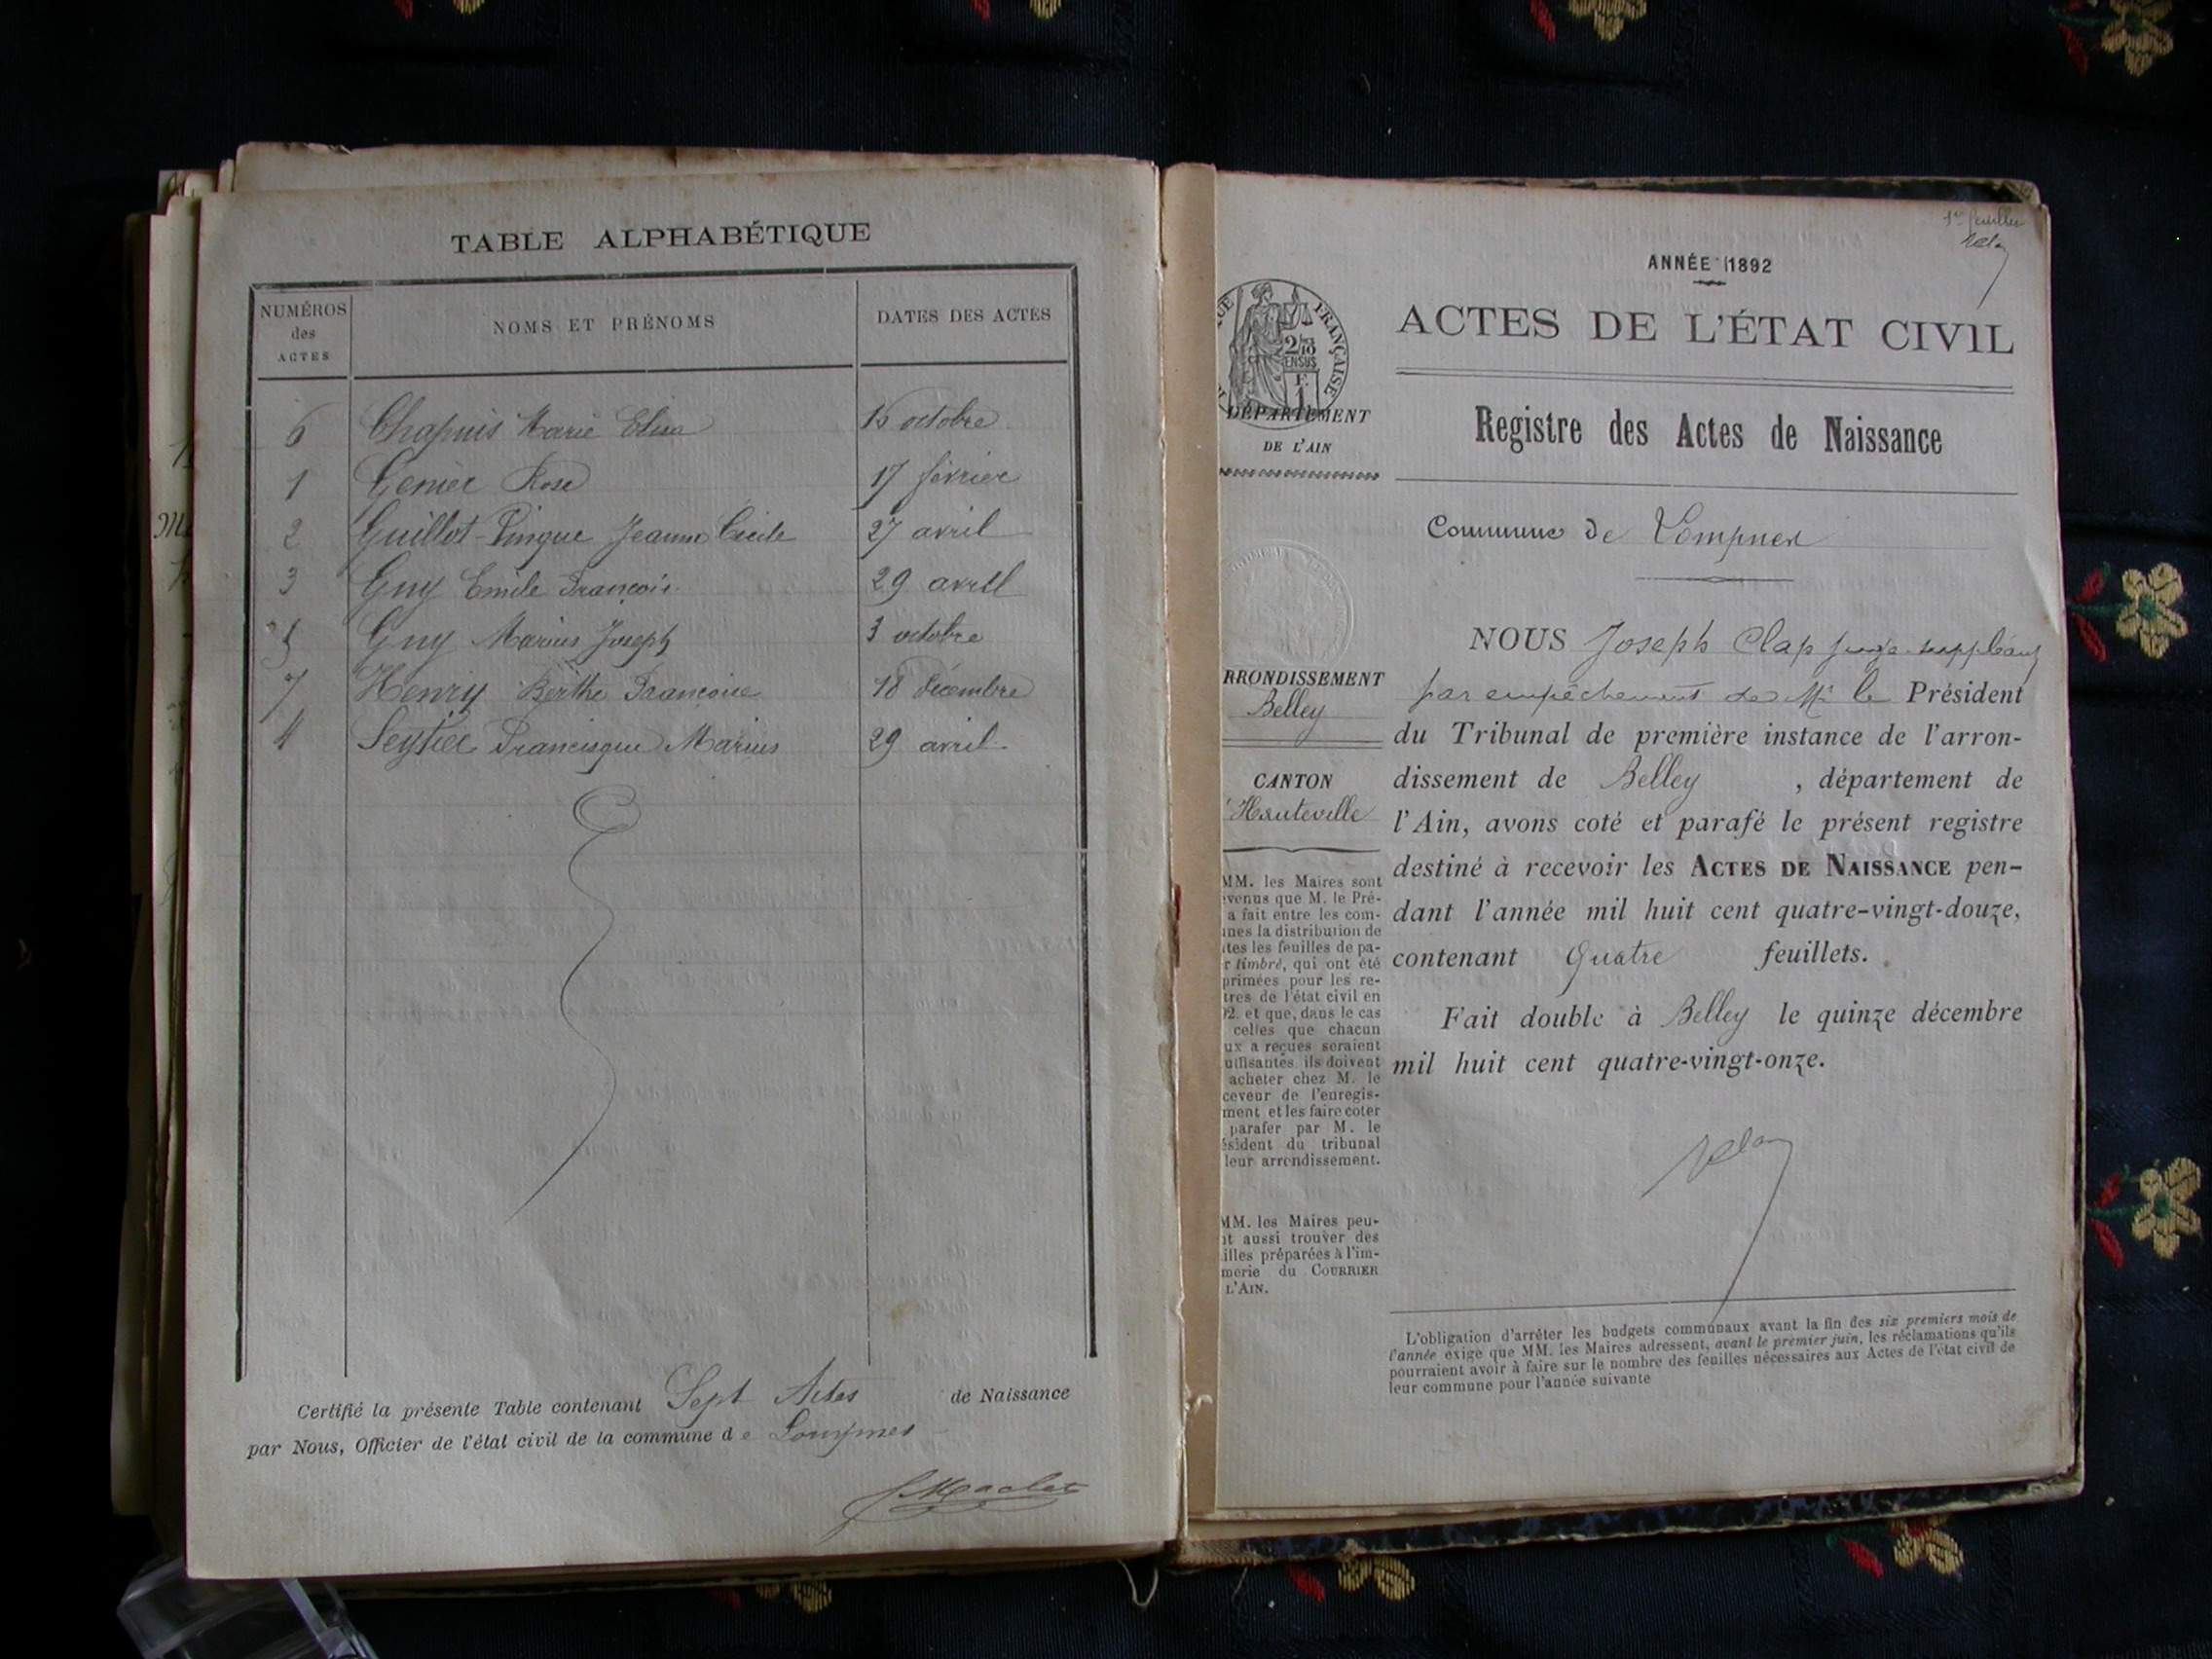 TABLE ALPHABÉTIQUE
NUMÉROS des ACTES
NOMS ET PRÉNOMS
DATES DES ACTES
6 Chapuis Marie Elisa 15 octobre
1 Genier Rose 17 février
2 Guillot-Pingue Jeanne Cécile 27 avril
3 Guy Emile François 29 avril
5 Guy Marius Joseph 3 octobre
7 Henry Berthe Françoise 18 décembre
4 Seytier Francisque Marius 29 avril
Certifié la présente Table contenant Sept Actes de Naissance
par Nous, Officier de l'état civil de la commune de Lompnes
1er feuillet
ANNÉE 1892
ACTES DE L'ÉTAT CIVIL
FRANÇAISE
DÉPARTEMENT
DE L'AIN
Registre des Actes de Naissance
Commune de Lompnes
NOUS Joseph Clap juge suppléant
par empêchement de Mr le Président
du Tribunal de première instance de l'arron-
dissement de Belley, département de
l'Ain, avons coté et parafé le présent registre
destiné à recevoir les ACTES DE NAISSANCE pen-
dant l'année mil huit cent quatre-vingt-douze,
contenant Quatre feuillets.
Fait double à Belley le quinze décembre
mil huit cent quatre-vingt-onze.
RRONDISSEMENT
Belley
CANTON
Hauteville
MM. les Maires sont
venus que M. le Pré-
a fait entre les com-
nes la distribution de
tes les feuilles de pa-
r timbré, qui ont été
primées pour les re-
tres de l'état civil en
2. et que, dans le cas
celles que chacun
ux a reçues seraient
uffisantes ils doivent
acheter chez M. le
ceveur de l'enregis-
ment et les faire coter
parafer par M. le
ésident du tribunal
leur arrondissement.
MM. les Maires peu-
nt aussi trouver des
illes préparées à l'im-
merie du COURRIER
L'AIN.
L'obligation d'arrêter les budgets communaux avant la fin des six premiers mois de
l'année exige que MM. les Maires adressent, avant le premier juin, les réclamations qu'ils
pourraient avoir à faire sur le nombre des feuilles nécessaires aux Actes de l'état civil de
leur commune pour l'année suivante